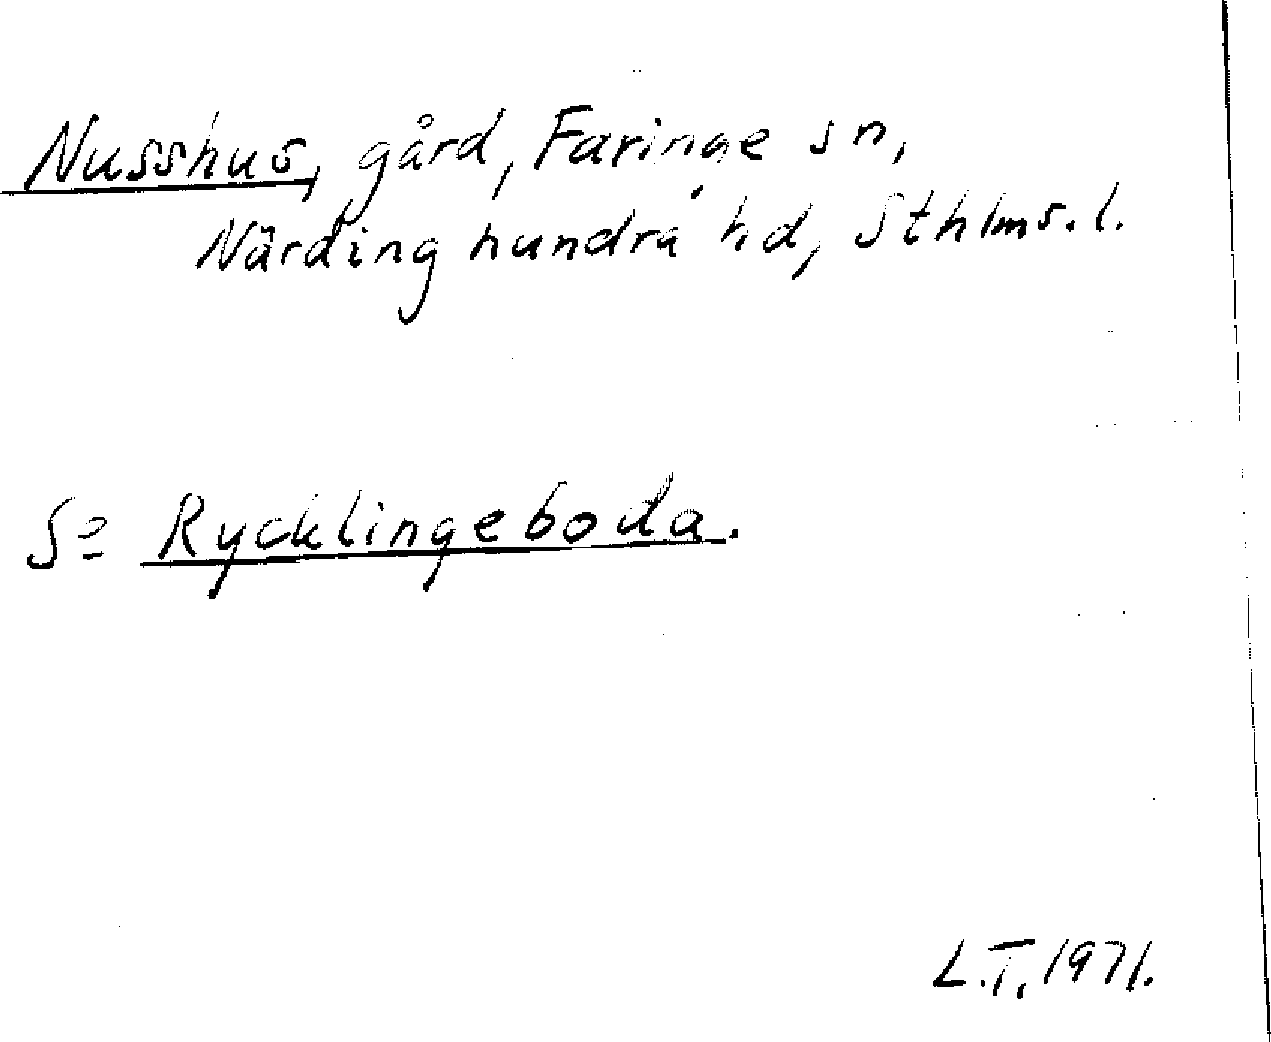 Nusshus, gård, Faringe sn,
Närdinghundra hd, Sthlms.l.
Se Rycklingeboda.
L.T. 1971.